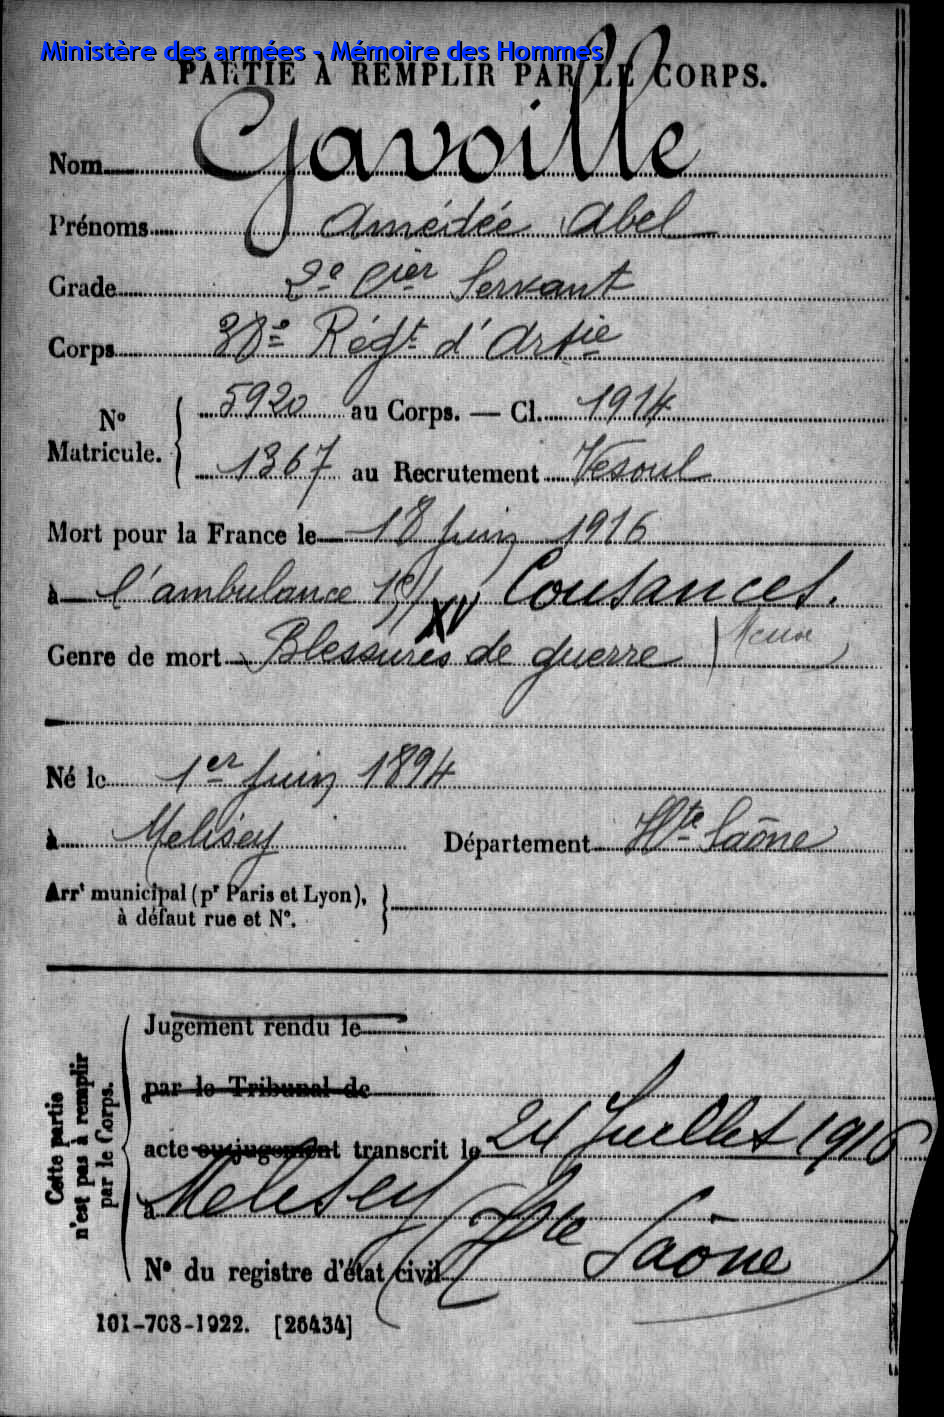 Ministère des armées - Mémoire des Hommes
PARTIE À REMPLIR PAR LE CORPS.
Nom Gavoille
Prénoms Amédée Abel
Grade 2e Cier Servant
Corps Régt d'Artie
No Matricule. 5920 au Corps. — Cl. 1914
1367 au Recrutement Vesoul
Mort pour la France le 18 Juin 1916
à l'ambulance XV Cousances.
Genre de mort Blessures de guerre (Meuse)
Né le 1er Juin 1894
à Melisey Département Hte Saône
Arrt municipal (pr Paris et Lyon),
à défaut rue et No.
Cette partie n'est pas à remplir par le Corps.
Jugement rendu le
par le Tribunal de
acte ou jugement transcrit le 24 Juillet 1916
à Melisey (Hte Saône)
No du registre d'état civil
101-708-1922. [26434]